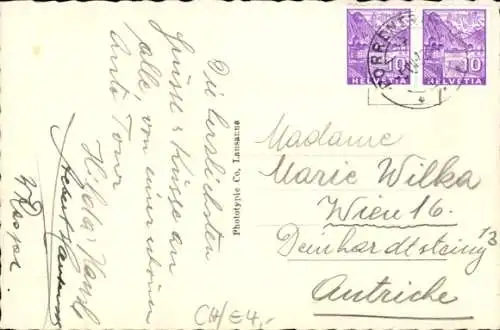 Die herzlichsten
Grüsse & Küsse an
alle, von einer schönen
Auto Tour
Hilda, Hansl,
HELVETIA 10
HELVETIA 10
Phototypie Co, Lausanne
Madame
Marie Wilka
Wien 16.
Deinhardtsteing 13
Autriche
CH/E4,-